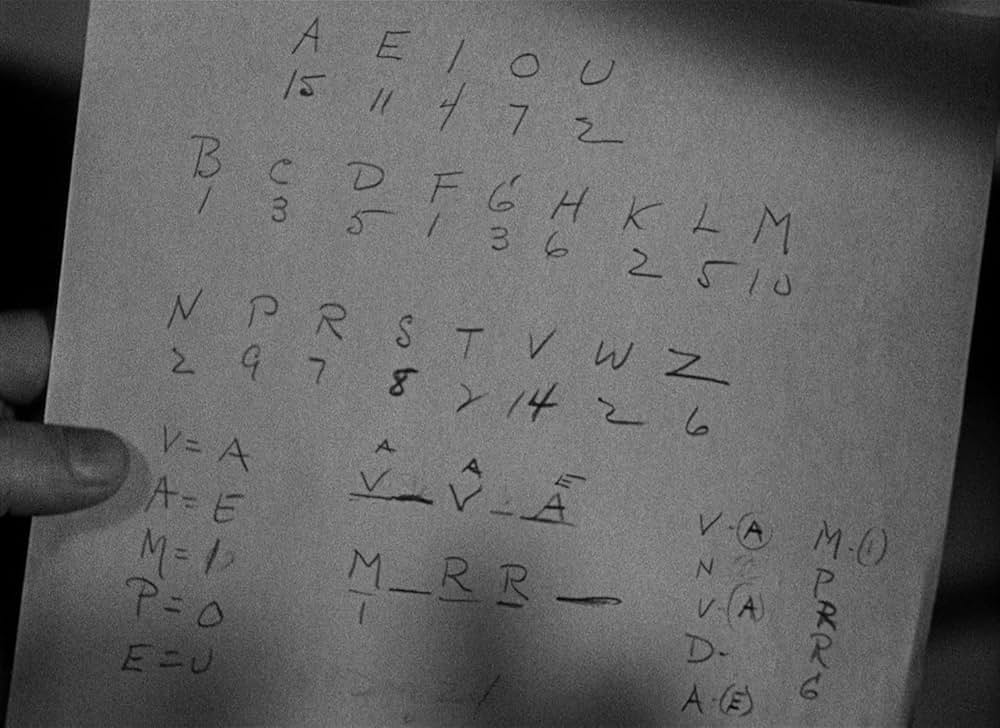 A E I O U
15 11 4 7 2
B C D F G H K L M
1 3 5 1 3 6 2 5 10
N P R S T V W Z
2 9 7 8 2 14 2 6
V = A
A = E
M = I
P = O
E = U
A A E
V _ V _ A
M _ R R _
I
V - (A)
N
V - (A)
D -
A - (E)
M - (I)
P
R
R
G